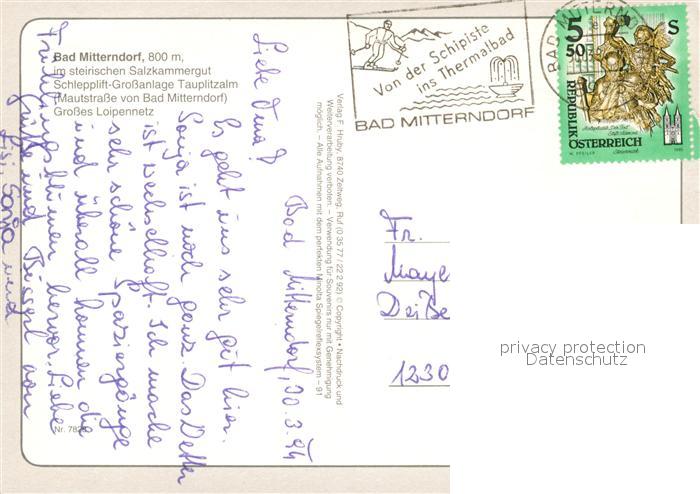 Bad Mitterndorf, 800 m,
im steirischen Salzkammergut
Schlepplift-Großanlage Tauplitzalm
(Mautstraße von Bad Mitterndorf)
Großes Loipennetz
Von der Schipiste
ins Thermalbad
BAD MITTERNDORF
BAD MITTERND
5 S
50
REPUBLIK
ÖSTERREICH
Verlag F. Hruby, 8740 Zeltweg, Ruf (0 35 77 / 22 2 92) © Copyright • Nachdruck und
Weiterverarbeitung verboten. – Verwendung für Souvenirs nur mit Genehmigung
möglich. – Alle Aufnahmen mit dem perfekten Minolta Spiegelreflexsystem – 91
Bad Mitterndorf, 30.3.94
Liebe Oma!
Es geht uns sehr gut hier.
Sonja ist noch ganz. Das Wetter
ist wechselhaft. Ich mache
sehr schöne Spaziergänge
und überall kommen die
Frühlingsblumen hervor. Liebe
Grüße und Busserl von
Lisi, Sonja und
Fr.
Maye
Deiße
1230
privacy protection
Datenschutz
Nr. 782